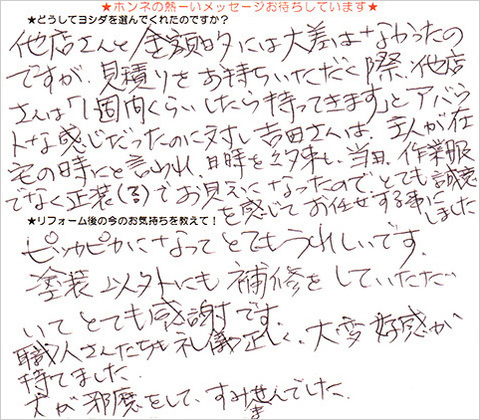 ★ホンネの熱ーいメッセージお待ちしています★
★どうしてヨシダを選んでくれたのですか？
他店さんと金額的には大差はなかったの
ですが、見積りをお持ちいただく際、他店
さんは「1週間くらいしたら持ってきます」とアバウ
トな感じだったのに対し吉田さんは、主人が在
宅の時にと言われ、日時を約束し、当日、作業服
でなく正装（る）でお見えになったので、とても誠意
を感じてお任せする事に
しました
★リフォーム後の今のお気持ちを教えて！
ピッカピカになってとてもうれしいです。
塗装以外にも補修をしていただ
いてとても感謝です。
職人さんたちも礼儀正しく、大変好感が
持てました。
犬が邪魔をして、すみませんでした。